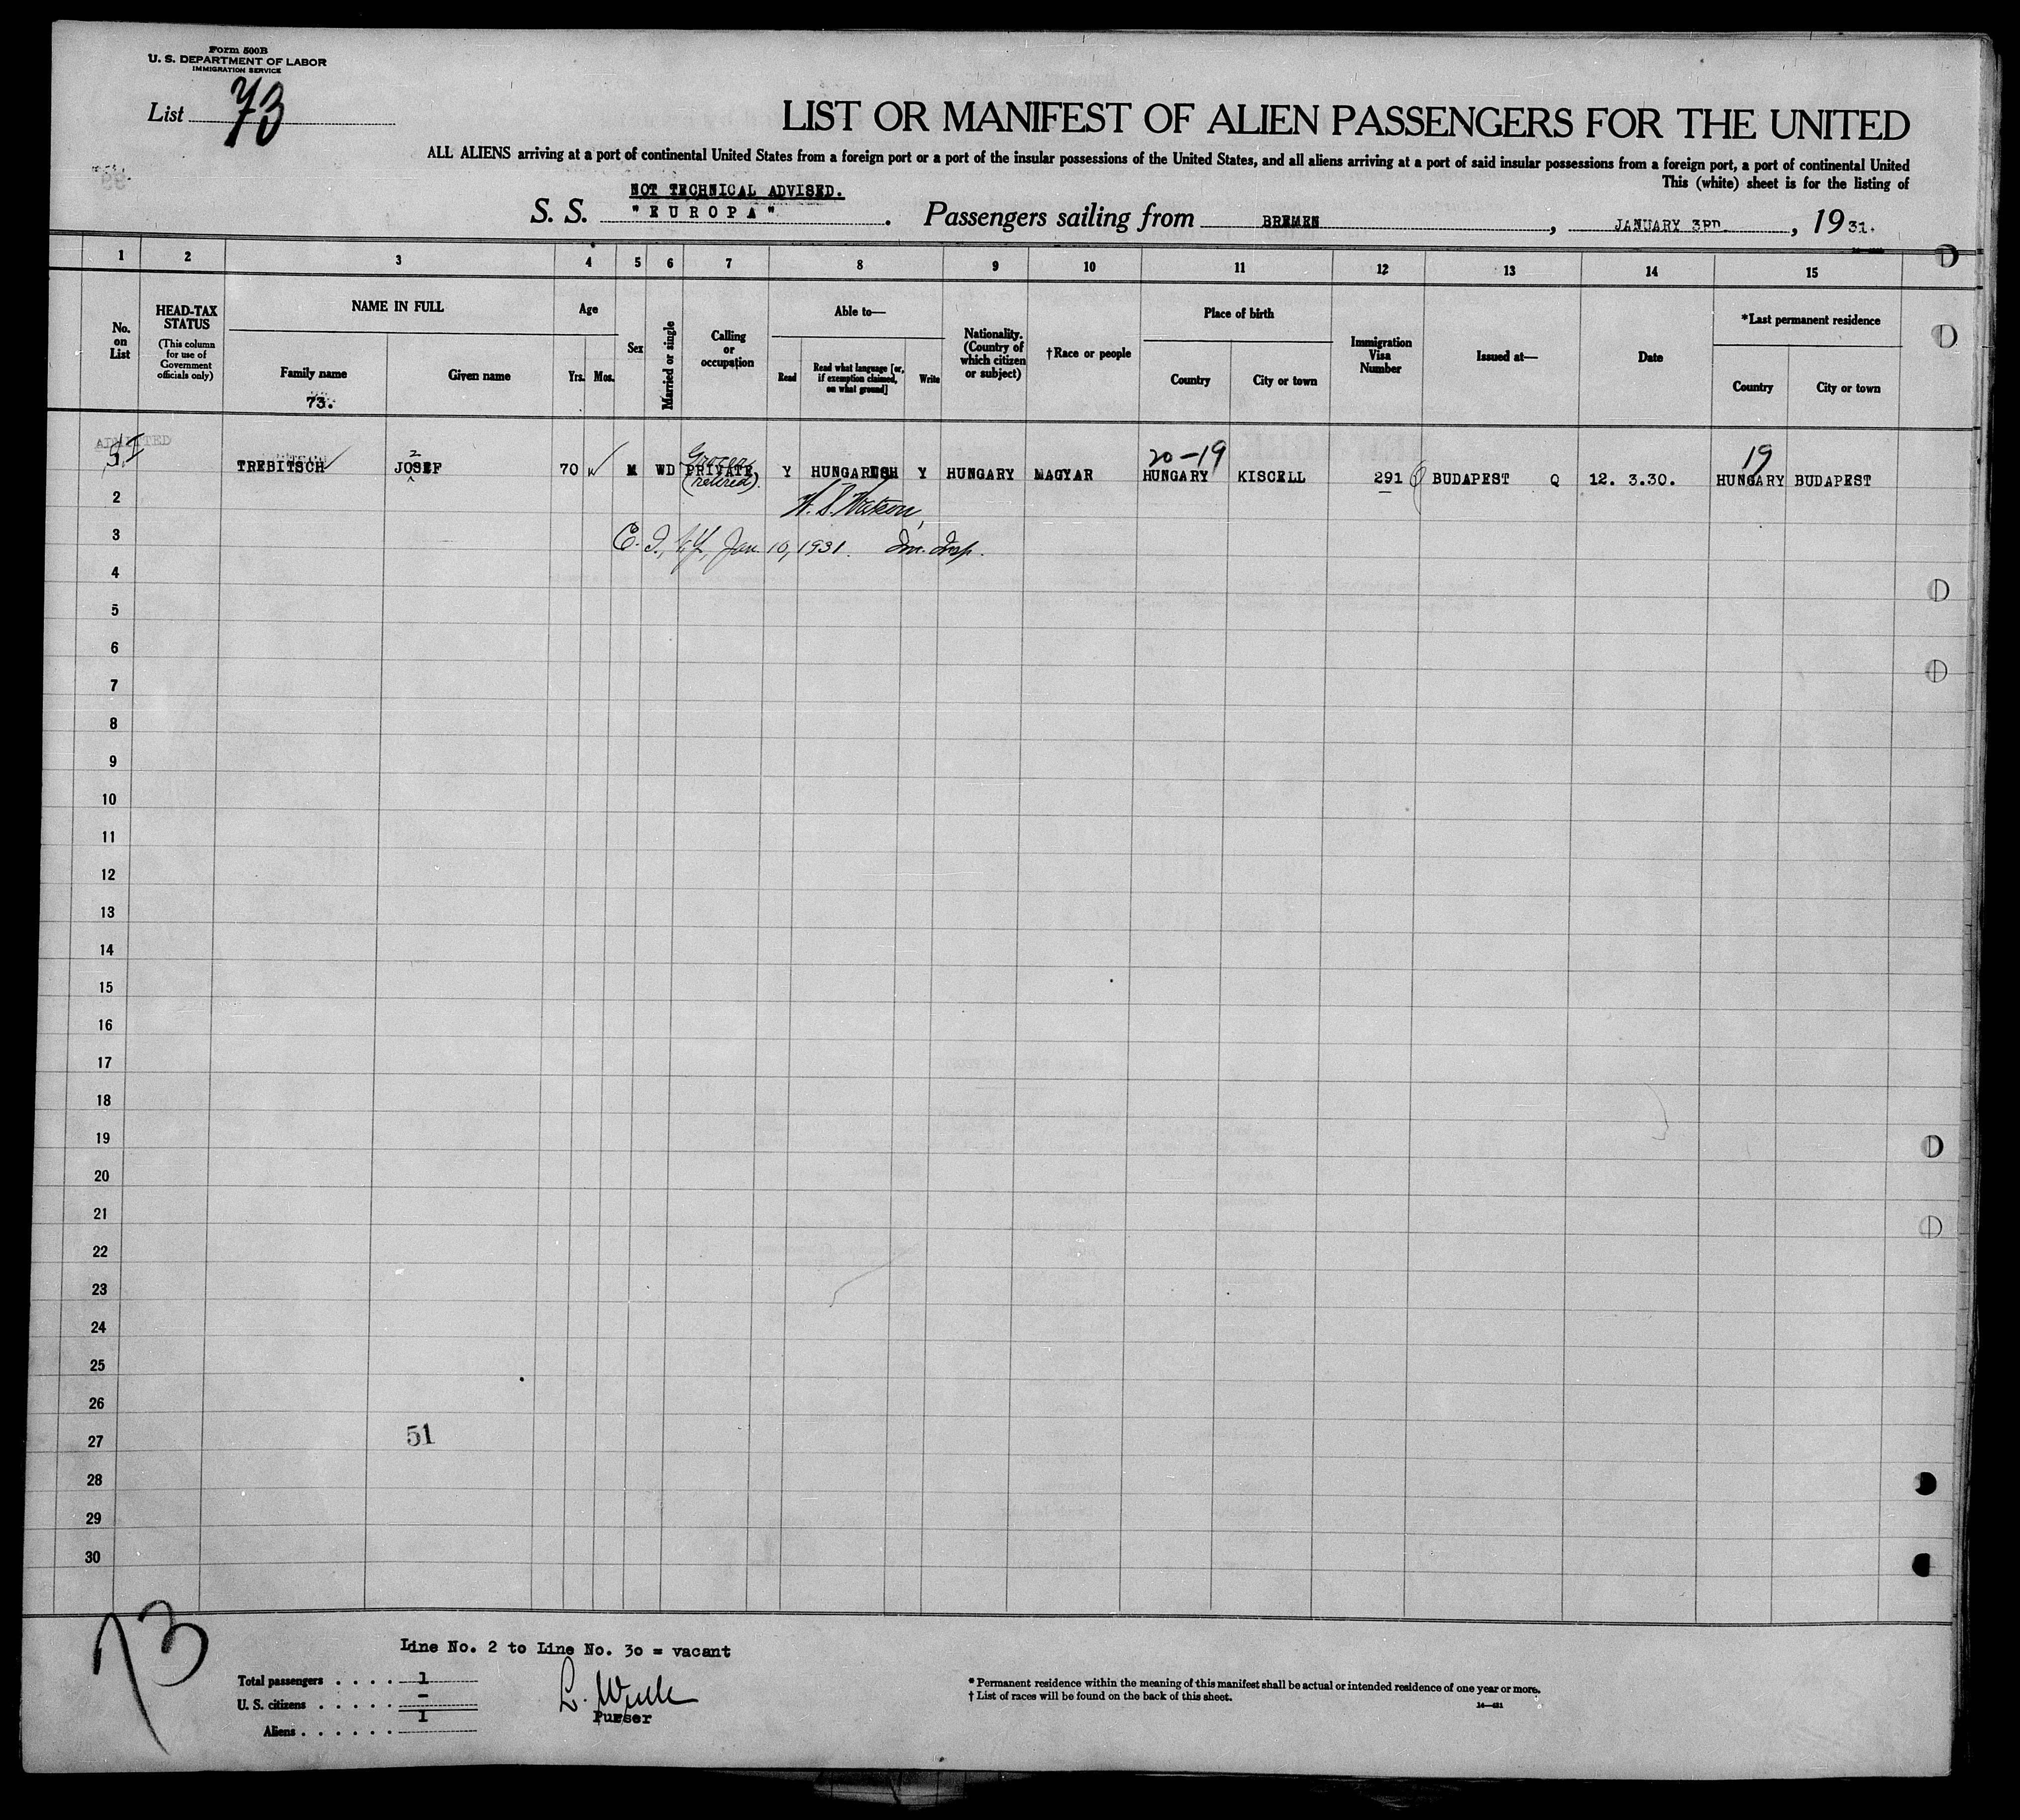 Form 500B
U. S. DEPARTMENT OF LABOR
IMMIGRATION SERVICE
List 73
LIST OR MANIFEST OF ALIEN PASSENGERS FOR THE UNITED
ALL ALIENS arriving at a port of continental United States from a foreign port or a port of the insular possessions of the United States, and all aliens arriving at a port of said insular possessions from a foreign port, a port of continental United
This (white) sheet is for the listing of
NOT TECHNICAL ADVISED.
S. S. "EUROPA". Passengers sailing from BREMEN, JANUARY 3RD, 1931.
1 2 3 4 5 6 7 8 9 10 11 12 13 14 15
No. on List
HEAD-TAX STATUS
(This column for use of Government officials only)
NAME IN FULL
Family name
Given name
73.
Age
Yrs. Mos.
Sex
Married or single
Calling or occupation
Able to—
Read
Read what language [or, if exemption claimed, on what ground]
Write
Nationality. (Country of which citizen or subject)
†Race or people
Place of birth
Country
City or town
Immigration Visa Number
Issued at—
Date
*Last permanent residence
Country
City or town
ADMITTED
Grocer 20-19 19
TREBITSCH JOSEF 70 M WD PRIVATE Y HUNGARISH Y HUNGARY MAGYAR HUNGARY KISCELL 291 BUDAPEST Q 12. 3.30. HUNGARY BUDAPEST
(retired).
2
3 E. I., N.Y., Jan. 10, 1931. Im. Insp.
4
5
6
7
8
9
10
11
12
13
14
15
16
17
18
19
20
21
22
23
24
25
26
27 51
28
29
30
73
Line No. 2 to Line No. 30 = vacant
Total passengers . . . . 1
U. S. citizens . . . . . –
Aliens . . . . . . 1
Purser
* Permanent residence within the meaning of this manifest shall be actual or intended residence of one year or more.
† List of races will be found on the back of this sheet.
14—421